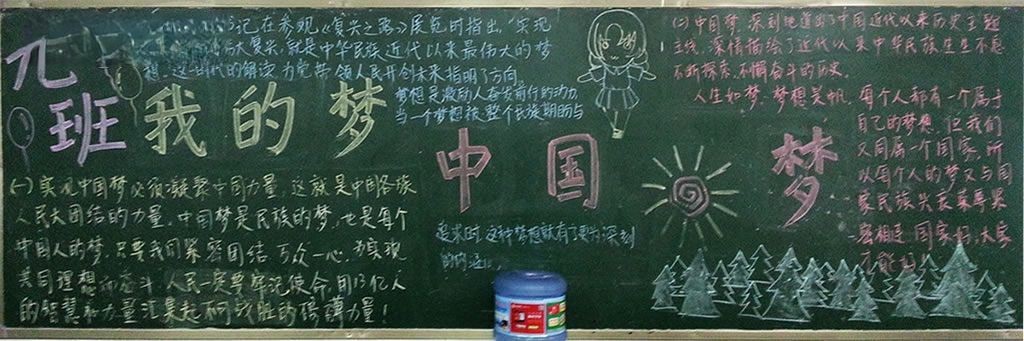 九班
我的梦
中国
梦
记在参观《复兴之路》展览时指出"实现
伟大复兴,就是中华民族近代以来最伟大的梦
想,这一时代的解读,为党带领人民开创未来指明了方向
梦想是激励人奋发前行的动力,
当一个梦想被整个民族期盼与
追求时,这种梦想就有了更为深刻
的内涵。
(一)实现中国梦必须凝聚中国力量。这就是中国各族
人民大团结的力量。中国梦是民族的梦,也是每个
中国人的梦,只要我们紧密团结,万众一心,为实现
共同理想而奋斗,人民一定要牢记使命,用13亿人
的智慧和力量汇集起不可战胜的磅礴力量!
(二)中国梦,深刻地道出了中国近代以来历史主题
主线,深情描绘了近代以来中华民族生生不息
不断探索、不懈奋斗的历史。
人生如梦,梦想是帆,每个人都有一个属于
自己的梦想,但我们
又同属一个国家,所
以每个人的梦又与国
家民族
密相连,国家好,大家
才能好!